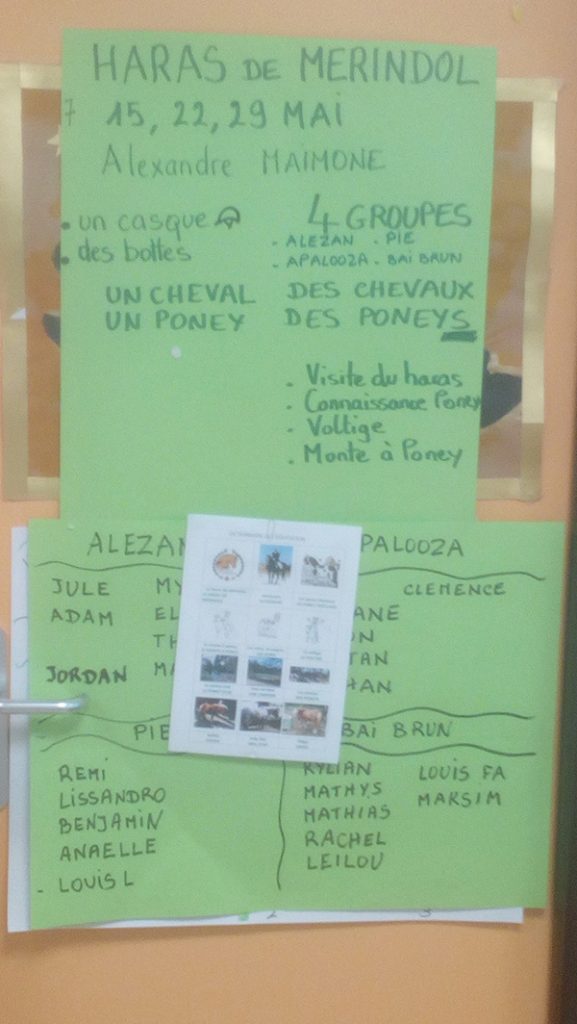 HARAS DE MERINDOL
7 15, 22, 29 MAI
Alexandre MAIMONE
. un casque
. des bottes
4 GROUPES
. ALEZAN . PIE
. APALOOZA . BAI BRUN
UN CHEVAL DES CHEVAUX
UN PONEY DES PONEYS
. Visite du haras
. Connaissance Poney
. Voltige
. Monte à Poney
ALEZAN
PALOOZA
JULE MY
ADAM EL
TH
JORDAN MA
CLEMENCE
ANE
ON
TAN
HAN
PIE
REMI
LISSANDRO
BENJAMIN
ANAELLE
- LOUIS L
BAI BRUN
KYLIAN LOUIS FA
MATHYS MAKSIM
MATHIAS
RACHEL
LEILOU
2 3